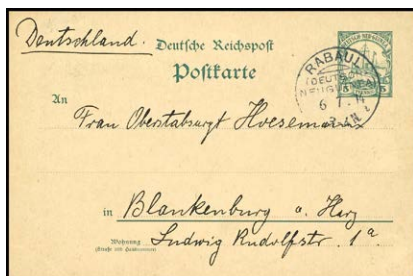 Deutschland. Deutsche Reichspost
Postkarte
DEUTSCH-NEU-GUINEA
RABAUL
DEUTSCH
NEUGUINEA
6 1
5 PFENNIG 5
An
Frau Oberstabsarzt Hoesemann
in Blankenburg a. Harz
Wohnung
(Straße und Hausnummer)
Ludwig Rudolfstr. 1a